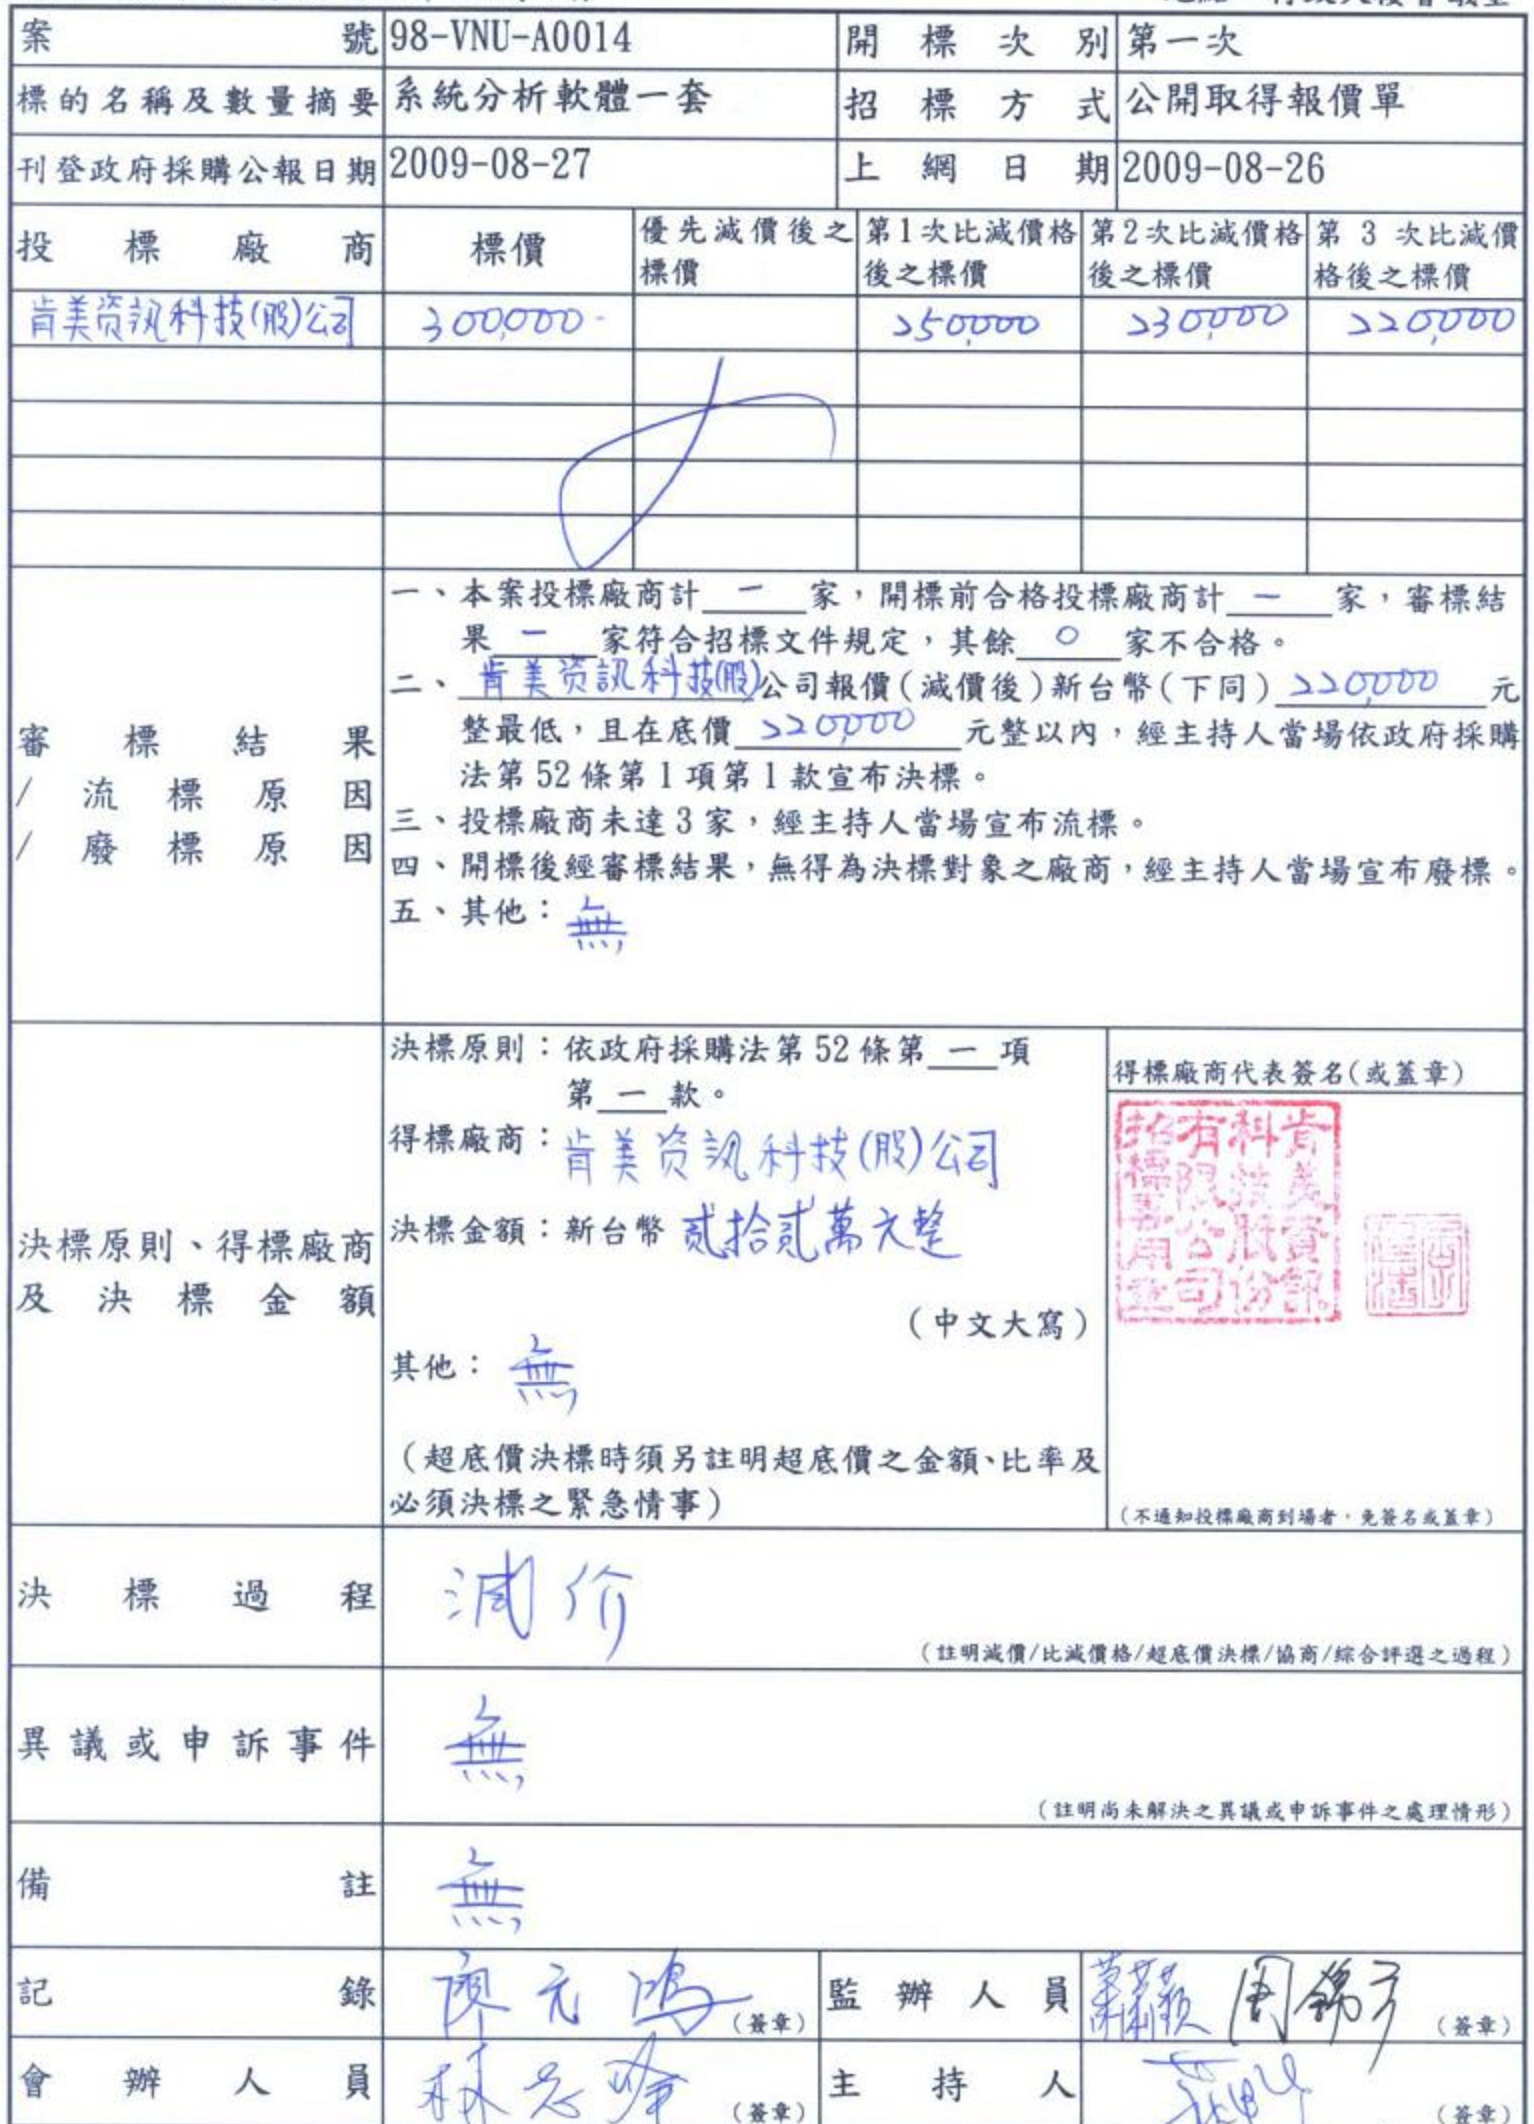 案號 98-VNU-A0014 開標次別 第一次
標的名稱及數量摘要 系統分析軟體一套 招標方式 公開取得報價單
刊登政府採購公報日期 2009-08-27 上網日期 2009-08-26
投標廠商 標價 優先減價後之 第1次比減價格 第2次比減價格 第3次比減價
標價 後之標價 後之標價 格後之標價
肯美资訊科技(股)公司 300,000- 250,000 230,000 220,000
一、本案投標廠商計 一 家，開標前合格投標廠商計 一 家，審標結
果 一 家符合招標文件規定，其餘 0 家不合格。
二、肯美资訊科技(股)公司報價(減價後)新台幣(下同) 220,000 元
審標結果 整最低，且在底價 220,000 元整以內，經主持人當場依政府採購
/流標原因 法第52條第1項第1款宣布決標。
/廢標原因 三、投標廠商未達3家，經主持人當場宣布流標。
四、開標後經審標結果，無得為決標對象之廠商，經主持人當場宣布廢標。
五、其他：無
決標原則：依政府採購法第52條第 一 項
第 一 款。
得標廠商代表簽名(或蓋章)
得標廠商：肯美资訊科技(股)公司
決標原則、得標廠商
及決標金額
決標金額：新台幣 贰拾贰萬元整
(中文大寫)
其他：無
(超底價決標時須另註明超底價之金額、比率及
必須決標之緊急情事)
肯美資訊
科技股份
有限公司
招標專用章
(不通知投標廠商到場者，免簽名或蓋章)
決標過程 減价
(註明減價/比減價格/超底價決標/協商/綜合評選之過程)
異議或申訴事件 無
(註明尚未解決之異議或申訴事件之處理情形)
備註 無
記錄 廖元鴻 (簽章) 監辦人員 (簽章)
會辦人員 (簽章) 主持人 (簽章)